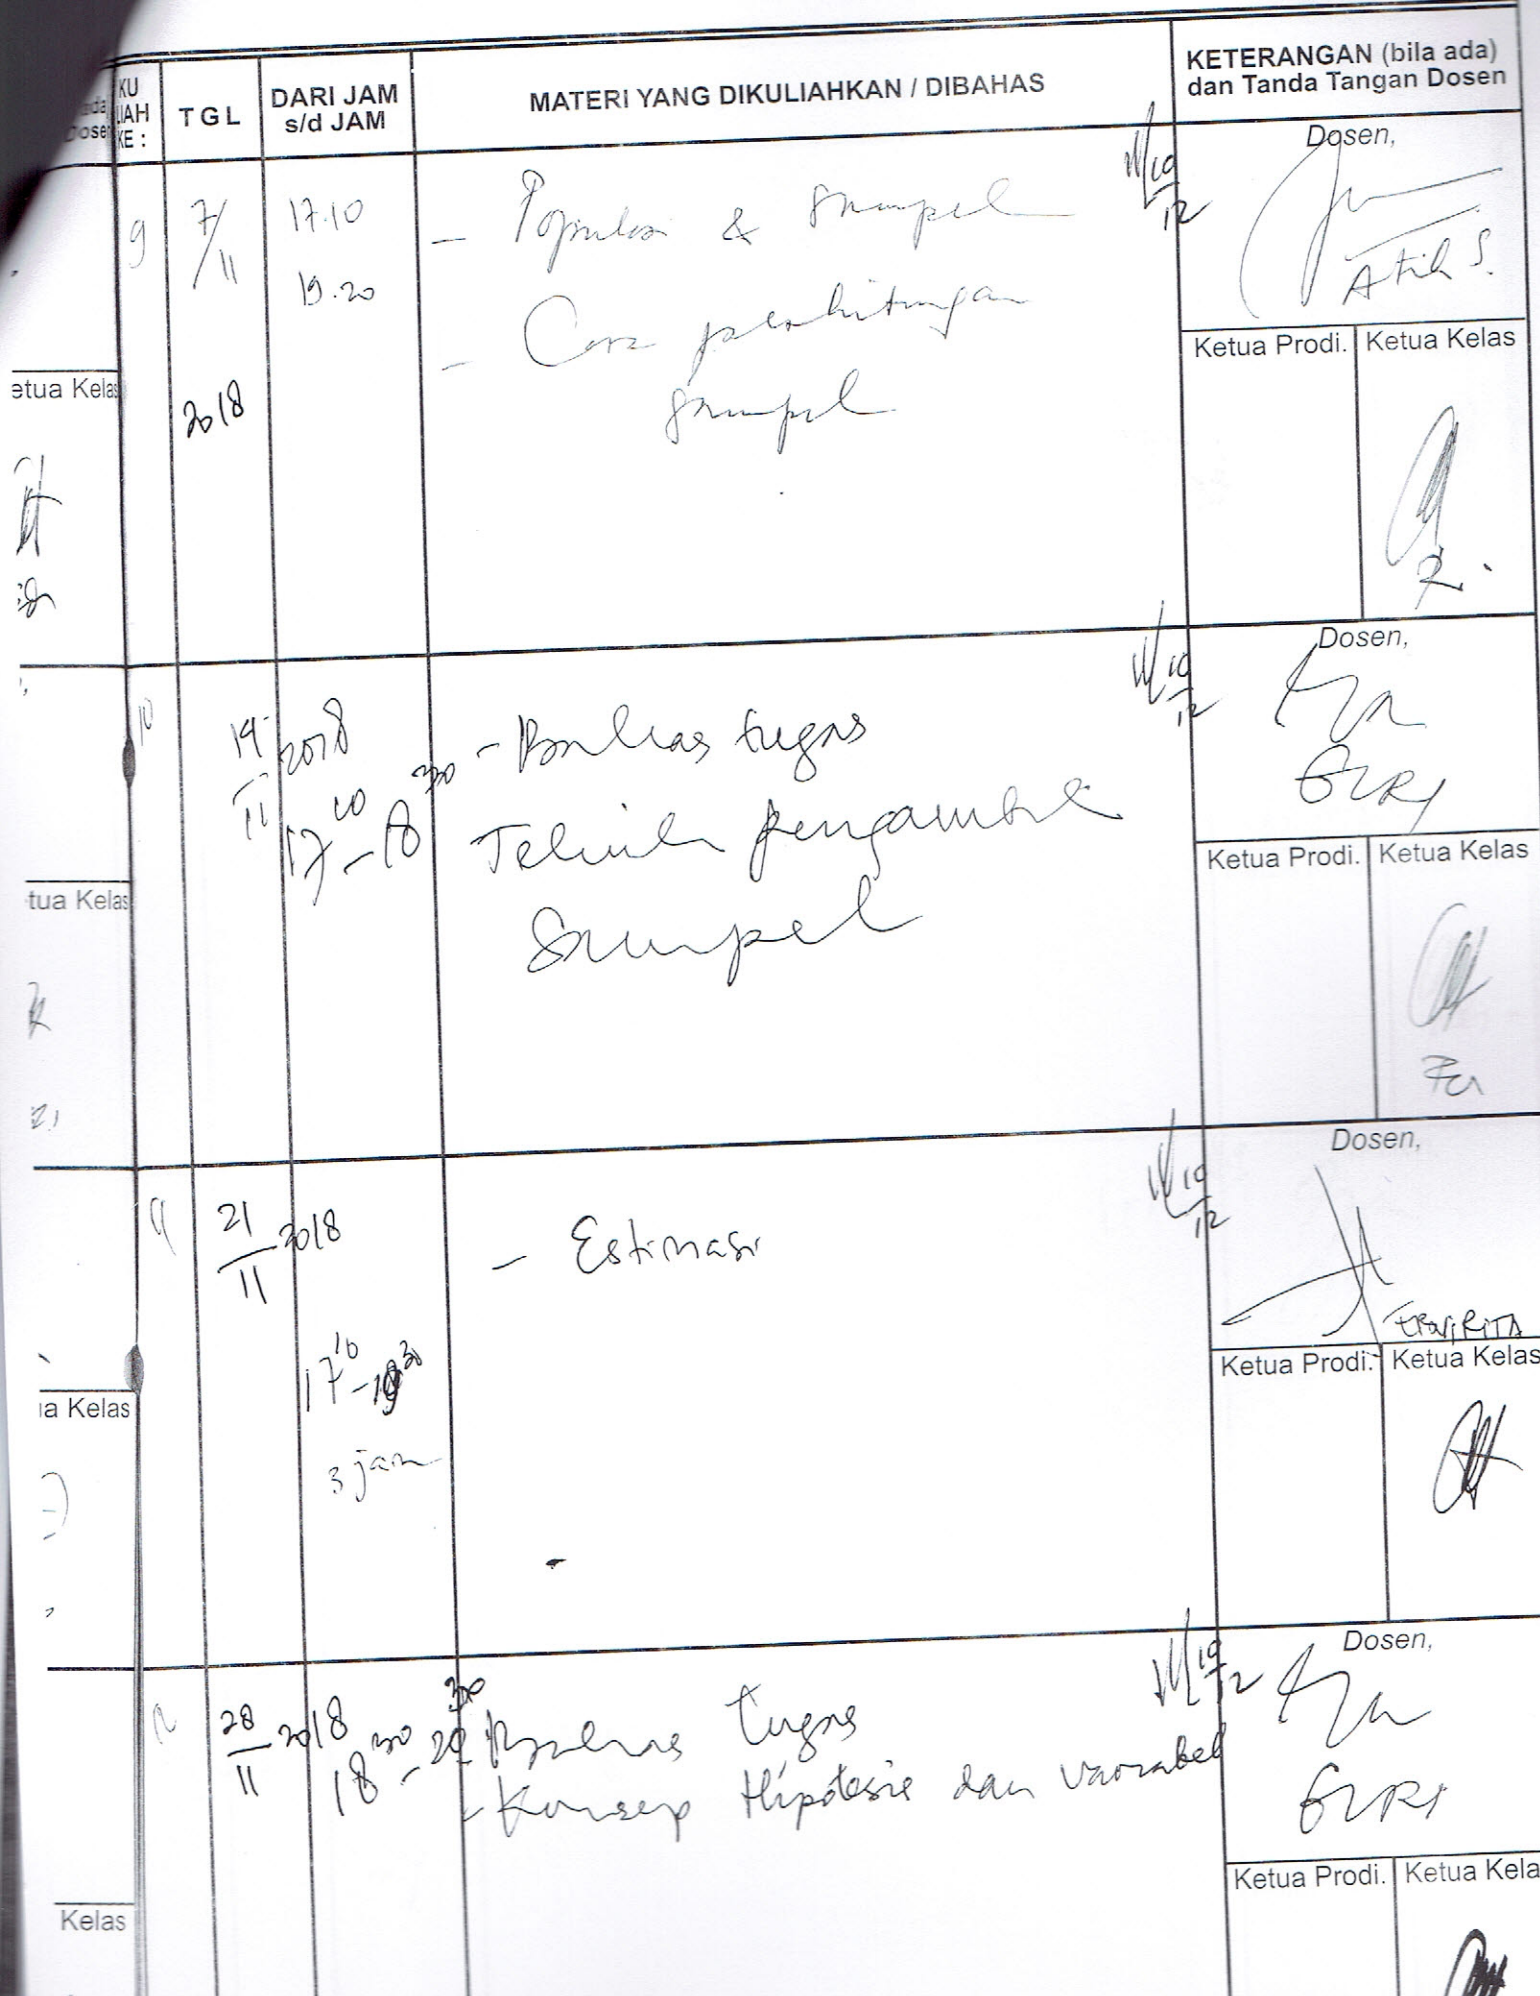 KU
LIAH
KE :
TGL
DARI JAM
s/d JAM
MATERI YANG DIKULIAHKAN / DIBAHAS
KETERANGAN (bila ada)
dan Tanda Tangan Dosen
9
7/11
2018
17.10
19.20
- Populasi & Sampel
- Cara perhitungan
sampel
10/12
Dosen,
Atik S.
Ketua Prodi.
Ketua Kelas
etua Kelas
10
14/11 2018
17 10 - 18 30
- Bahas tugas
Teknik pengambil
Sampel
10/12
Dosen,
Ketua Prodi.
Ketua Kelas
tua Kelas
11
21/11 2018
17 10 - 19 30
3 jam
- Estimasi
10/12
Dosen,
Ketua Prodi.
Ketua Kelas
ua Kelas
12
28/11 2018
18 30 - 20 30
- Bahas tugas
- Konsep Hipotesis dan variabel
10/12
Dosen,
Ketua Prodi.
Ketua Kela
Kelas